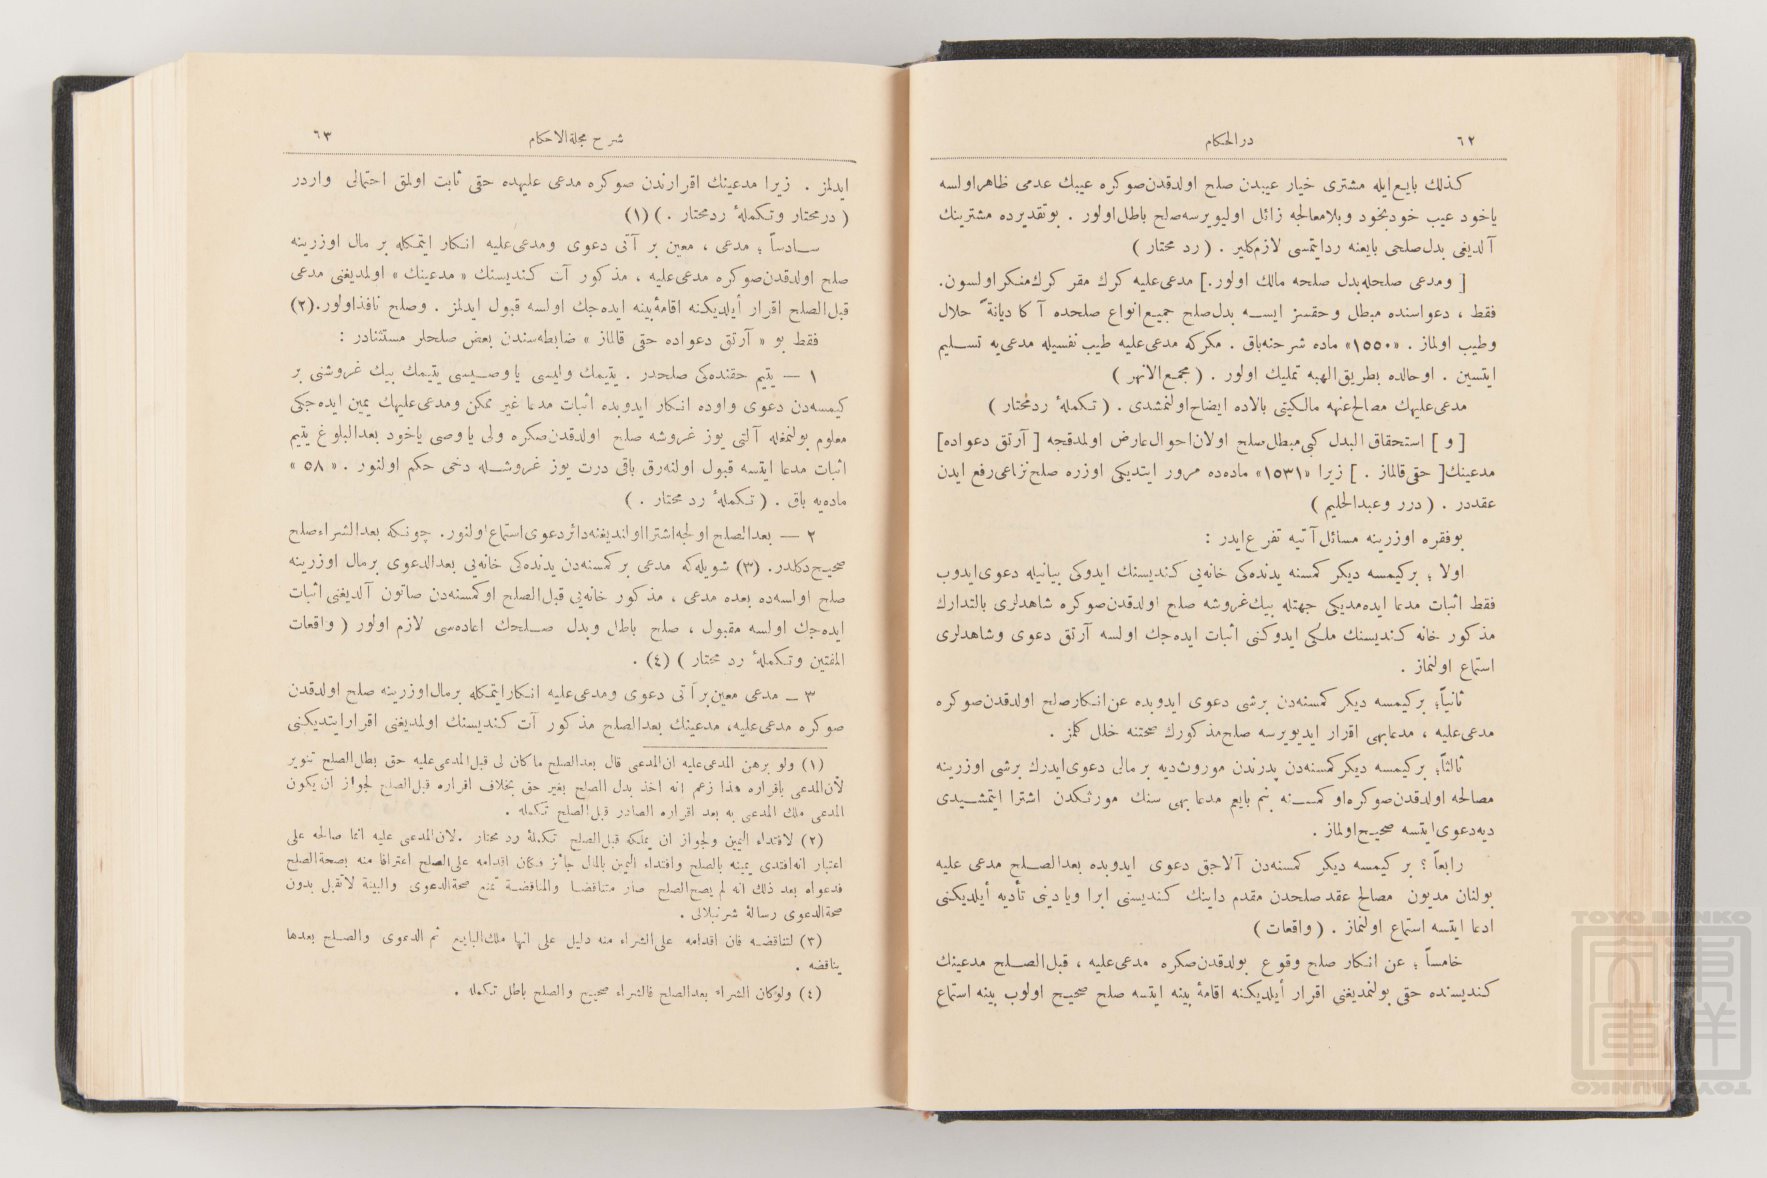 ٦٢
در الحكام
كذلك بايع ايله مشترى خيار عيبدن صلح اولدقدن صوكره عيبك عدمى ظاهر اولسه
ياخود عيب خودبخود وبلا معالجه زائل اوليويرسه صلح باطل اولور . بوتقديرده مشترينك
آلديغى بدل صلحى بايعنه رد ايتمسى لازم كلير . ( رد محتار )
[ ومدعى صلحله بدل صلحه مالك اولور.] مدعى عليه كرك مقر كرك منكر اولسون.
فقط ، دعواسنده مبطل وحقسز ايسه بدل صلح جميع انواع صلحده آ كا ديانةً حلال
وطيب اولماز . «١٥٥٠» ماده شرحنه باق . مكركه مدعى عليه طيب نفسيله مدعى يه تسليم
ايتسين . اوحالده بطريق الهبه تمليك اولور . ( مجمع الانهر )
مدعى عليهك مصالح عنهه مالكيتى بالاده ايضاح اولنمشدى . ( تكملهٔ رد محتار )
[ و ] استحقاق البدل كبى مبطل صلح اولان احوال عارض اولمدقجه [ آرتق دعواده]
مدعينك[ حقى قالماز . ] زيرا «١٥٣١» ماده ده مرور ايتديكى اوزره صلح نزاعى رفع ايدن
عقددر . ( درر وعبدالحليم )
بوفقره اوزرينه مسائل آتيه تفرع ايدر :
اولا ؛ بركيمسه ديكر كمسنه يدنده كى خانه يى كنديسنك ايدوكى بيانيله دعوى ايدوب
فقط اثبات مدعا ايده مديكى جهتله بيك غروشه صلح اولدقدن صوكره شاهدلرى بالتدارك
مذكور خانه كنديسنك ملكى ايدوكنى اثبات ايده جك اولسه آرتق دعوى وشاهدلرى
استماع اولنماز .
ثانياً؛ بركيمسه ديكر كمسنه دن برشى دعوى ايدوبده عن انكار صلح اولدقدن صوكره
مدعى عليه ، مدعابهى اقرار ايديويرسه صلح مذكورك صحتنه خلل كلمز .
ثالثاً؛ بركيمسه ديكر كمسنه دن پدرندن موروث ديه بر مالى دعوى ايدرك برشى اوزرينه
مصالحه اولدقدن صوكره او كمسنه بنم بايعم مدعا بهى سنك مورثكدن اشترا ايتمشيدى
ديه دعوى ايتسه صحيح اولماز .
رابعاً ؟ بر كيمسه ديكر كمسنه دن آلاجق دعوى ايدوبده بعد الصلح مدعى عليه
بولنان مديون مصالح عقد صلحدن مقدم داينك كنديسنى ابرا ويا دينى تأديه أيلديكنى
ادعا ايتسه استماع اولنماز . ( واقعات )
خامساً ؛ عن انكار صلح وقوع بولدقدن صكره مدعى عليه ، قبل الصلح مدعينك
كنديسنده حقى بولنمديغنى اقرار أيلديكنه اقامهٔ بينه ايتسه صلح صحيح اولوب بينه استماع
شرح مجلة الاحكام
٦٣
ايدلمز . زيرا مدعينك اقرارندن صوكره مدعى عليهده حقى ثابت اولمق احتمالى واردر
( در مختار وتكملهٔ رد محتار . ) (١)
سادساً ؛ مدعى ، معين بر آتى دعوى ومدعى عليه انكار ايتمكله بر مال اوزرينه
صلح اولدقدن صوكره مدعى عليه ، مذكور آت كنديسنك « مدعينك » اولمديغنى مدعى
قبل الصلح اقرار أيلديكنه اقامهٔ بينه ايده جك اولسه قبول ايدلمز . وصلح نافذ اولور.(٢)
فقط بو « آرتق دعواده حقى قالماز » ضابطه سندن بعض صلحلر مستثنادر :
١ — يتيم حقنده كى صلحدر . يتيمك وليسى يا وصيسى يتيمك بيك غروشنى بر
كيمسه دن دعوى واوده انكار ايدوبده اثبات مدعا غير ممكن ومدعى عليهك يمين ايده جكى
معلوم بولنمغله آلتى يوز غروشه صلح اولدقدن صكره ولى يا وصى ياخود بعد البلوغ يتيم
اثبات مدعا ايتسه قبول اولنه رق باقى درت يوز غروشله دخى حكم اولنور . « ٥٨ »
ماده يه باق . ( تكملهٔ رد محتار . )
٢ — بعد الصلح اولجه اشترا اولنديغنه دائر دعوى استماع اولنور. چونكه بعد الشراء صلح
صحيح دكلدر. (٣) شويله كه مدعى بر كمسنه دن يدنده كى خانه يى بعد الدعوى برمال اوزرينه
صلح اولسه ده بعده مدعى ، مذكور خانه يى قبل الصلح او كمسنه دن صاتون آلديغنى اثبات
ايده جك اولسه مقبول ، صلح باطل وبدل صلحك اعاده سى لازم اولور ( واقعات
المفتين وتكملهٔ رد محتار ) (٤) .
٣ — مدعى معين بر آتى دعوى ومدعى عليه انكار ايتمكله برمال اوزرينه صلح اولدقدن
صوكره مدعى عليه، مدعينك بعد الصلح مذكور آت كنديسنك اولمديغنى اقرار ايتديكنى
(١) ولو برهن المدعى عليه ان المدعى قال بعد الصلح ما كان لى قبل المدعى عليه حق بطل الصلح تنوير
لأن المدعى باقراره هذا زعم انه اخذ بدل الصلح بغير حق بخلاف اقراره قبل الصلح لجواز ان يكون
المدعى ملك المدعى به بعد اقراره الصادر قبل الصلح تكمله .
(٢) لافتداء اليمين ولجواز ان يملكه قبل الصلح تكملهٔ رد محتار . لان المدعى عليه انما صالحه على
اعتبار انه افتدى يمينه بالصلح وافتداء اليمين بالمال جائز فكان اقدامه على الصلح اعترافا منه بصحة الصلح
فدعواه بعد ذلك انه لم يصح الصلح صار متناقضا والمناقضة تمنع صحة الدعوى والبينة لاتقبل بدون
صحة الدعوى رسالهٔ شرنبلالى .
(٣) لتناقضه فان اقدامه على الشراء منه دليل على انها ملك البايع ثم الدعوى والصلح بعدها
يناقضه .
(٤) ولو كان الشراء بعد الصلح فالشراء صحيح والصلح باطل تكمله .
TOYO BUNKO
東洋文庫
TOYO BUNKO